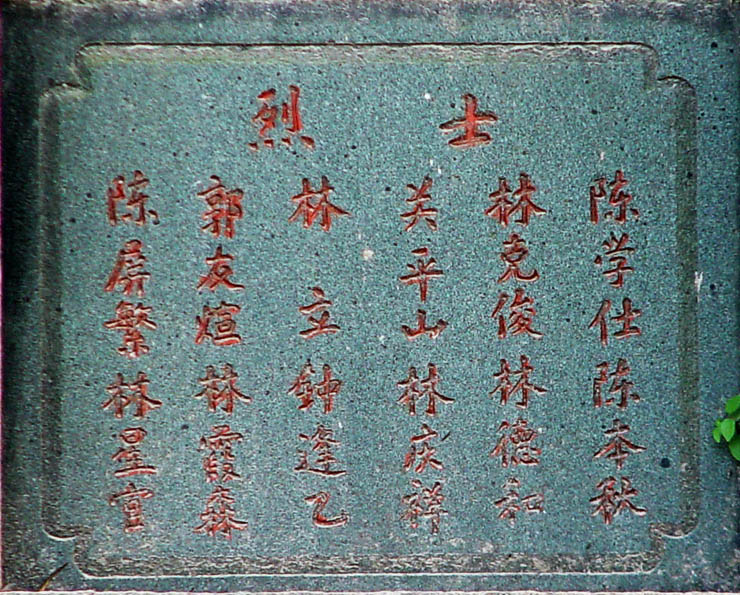 烈士
陈屏繁林星官
郭友煊林霞森
林立钟逢乙
关平山林庆祥
林克俊林德和
陈学仕陈本秋